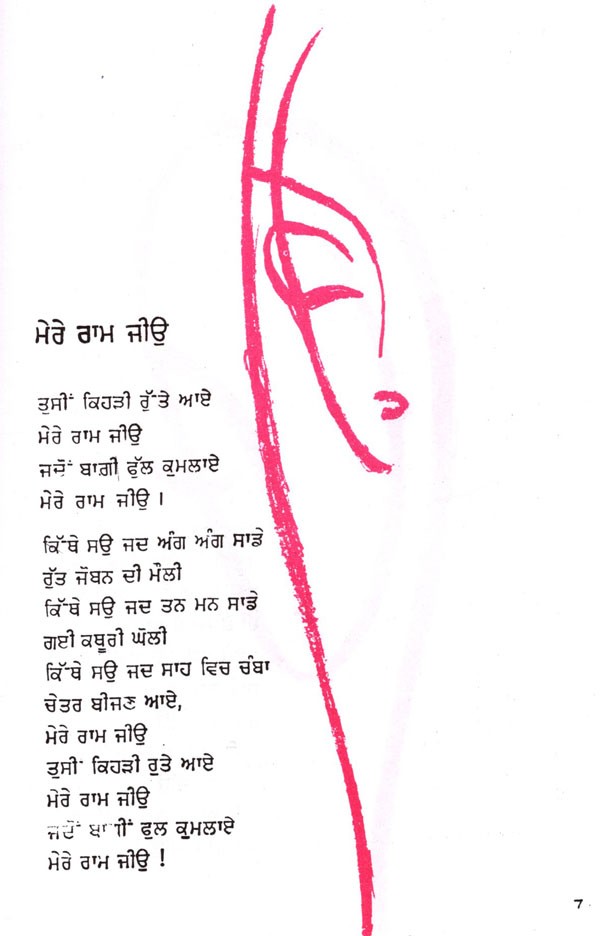 ਮੇਰੇ ਰਾਮ ਜੀਉ
ਤੁਸੀਂ ਕਿਹੜੀ ਰੁੱਤੇ ਆਏ
ਮੇਰੇ ਰਾਮ ਜੀਉ
ਜਦੋਂ ਬਾਗ਼ੀ ਫੁੱਲ ਕੁਮਲਾਏ
ਮੇਰੇ ਰਾਮ ਜੀਉ ।
ਕਿੱਥੇ ਸਉ ਜਦ ਅੰਗ ਅੰਗ ਸਾਡੇ
ਰੁੱਤ ਜੋਬਨ ਦੀ ਮੌਲੀ
ਕਿੱਥੇ ਸਉ ਜਦ ਤਨ ਮਨ ਸਾਡੇ
ਗਈ ਕਥੂਰੀ ਘੋਲੀ
ਕਿੱਥੇ ਸਉ ਜਦ ਸਾਹ ਵਿਚ ਚੰਬਾ
ਚੇਤਰ ਬੀਜਣ ਆਏ,
ਮੇਰੇ ਰਾਮ ਜੀਉ
ਤੁਸੀਂ ਕਿਹੜੀ ਰੁਤੇ ਆਏ
ਮੇਰੇ ਰਾਮ ਜੀਉ
ਜਦੋਂ ਬਾਗੀਂ ਫੁਲ ਕੁਮਲਾਏ
ਮੇਰੇ ਰਾਮ ਜੀਉ !
7